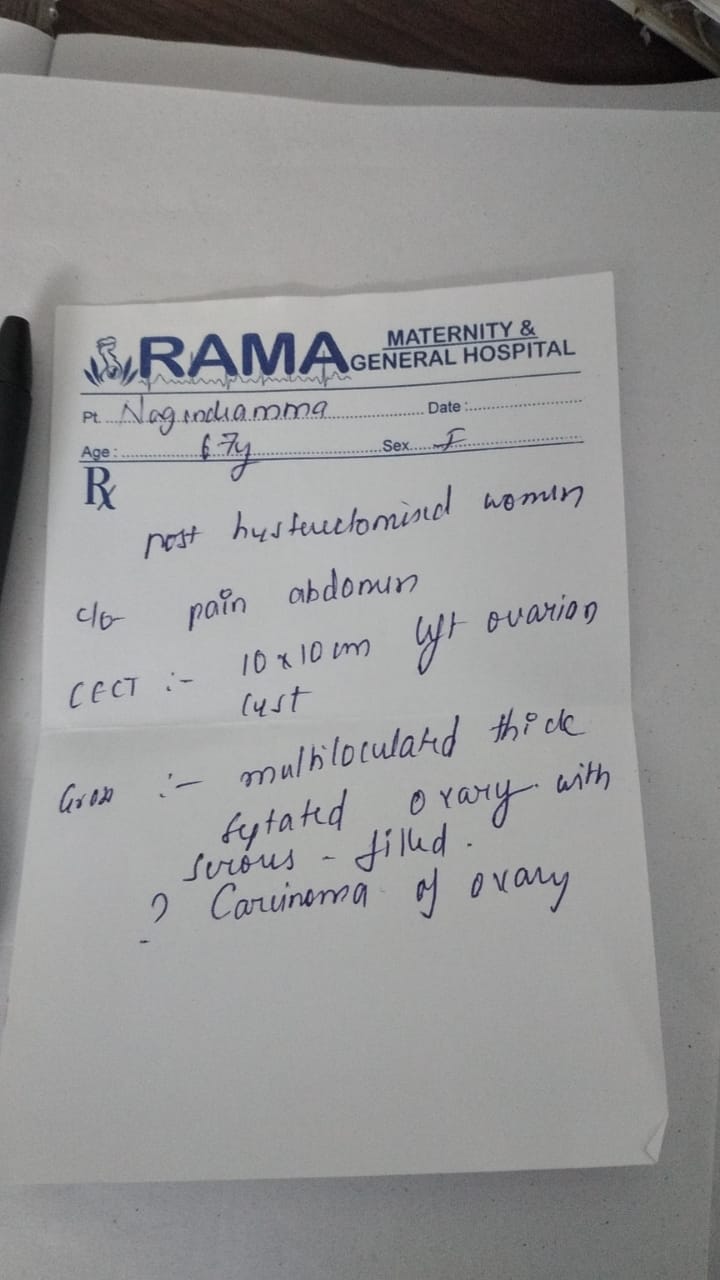 RAMA MATERNITY &
GENERAL HOSPITAL
Pt. Nagendramma Date :
Age : 67y Sex F
Rx
post hysterectomised women
c/o pain abdomen
CECT :- 10 x 10 cm left ovarian
cyst
Gross :- multiloculated thick
septated ovary with
serous - filled.
? Carcinoma of ovary